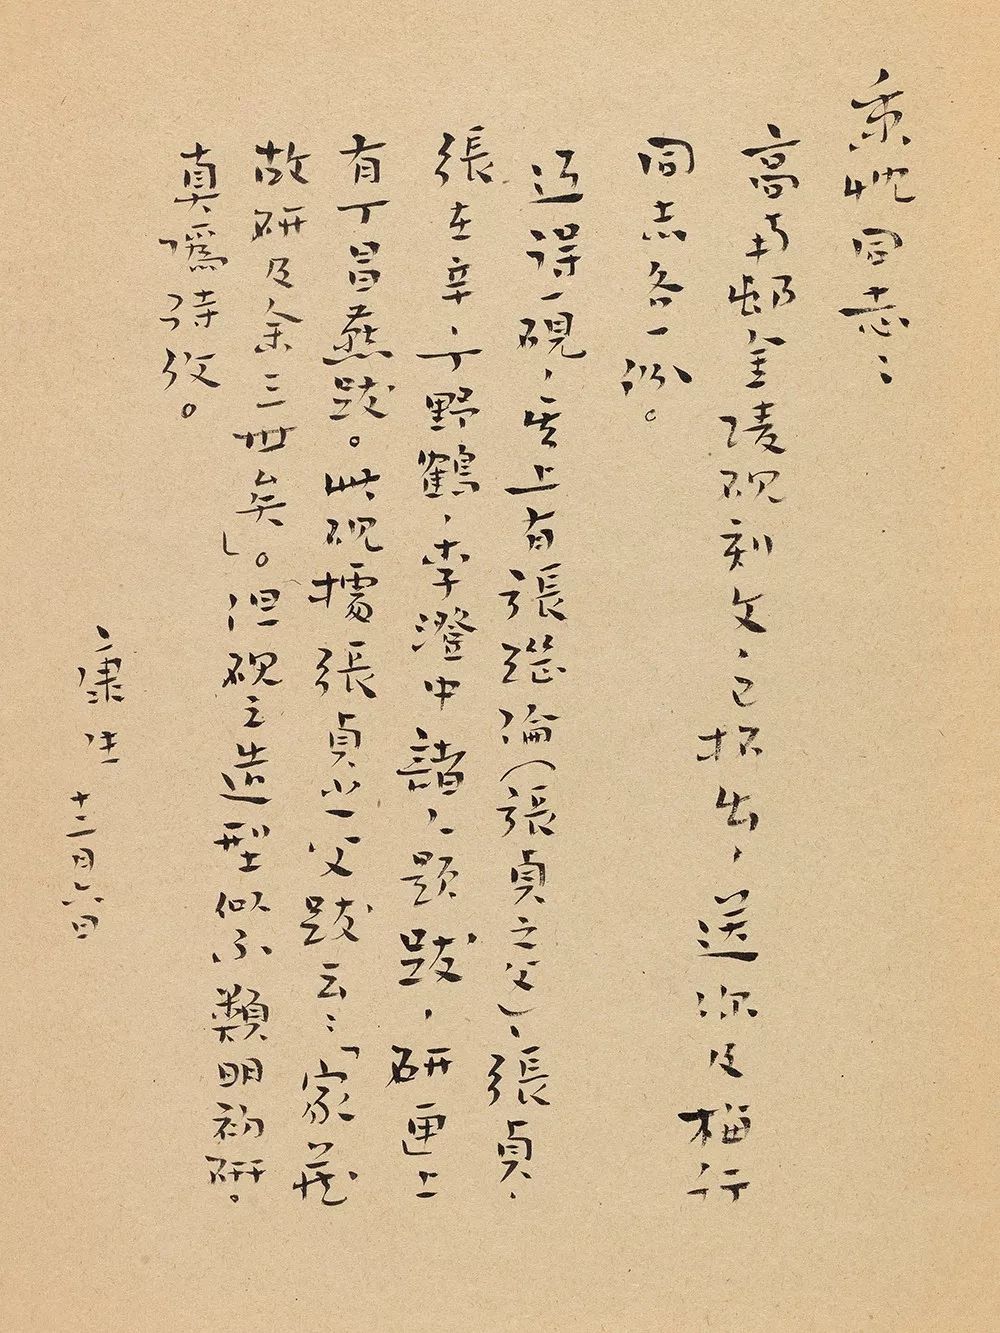 秉忱同志:
高南邨金陵砚刻文、已拓出,送你及梅行
同志各一份。
近得一砚,其上有張繼倫(張貞之父)、張貞、
張在辛、丁野鶴、李澄中諸人題跋,研匣上
有丁昌燕跋。此砚據張貞之父跋云:「家藏
故研及余三世矣」。但砚之造型似不類明初研。
真僞待攷。
康生 十二月六日